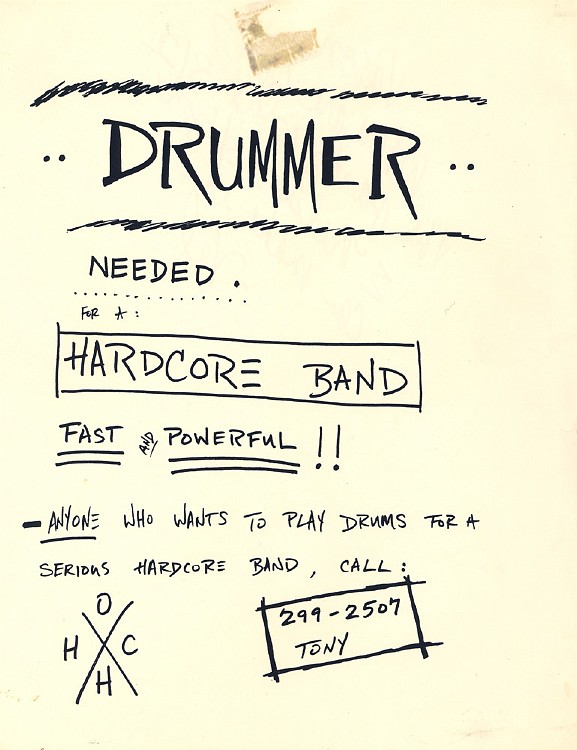 .. DRUMMER ..
NEEDED.
FOR A:
HARDCORE BAND
FAST AND POWERFUL !!
- ANYONE WHO WANTS TO PLAY DRUMS FOR A
SERIOUS HARDCORE BAND, CALL:
O
H C
H
299-2507
TONY